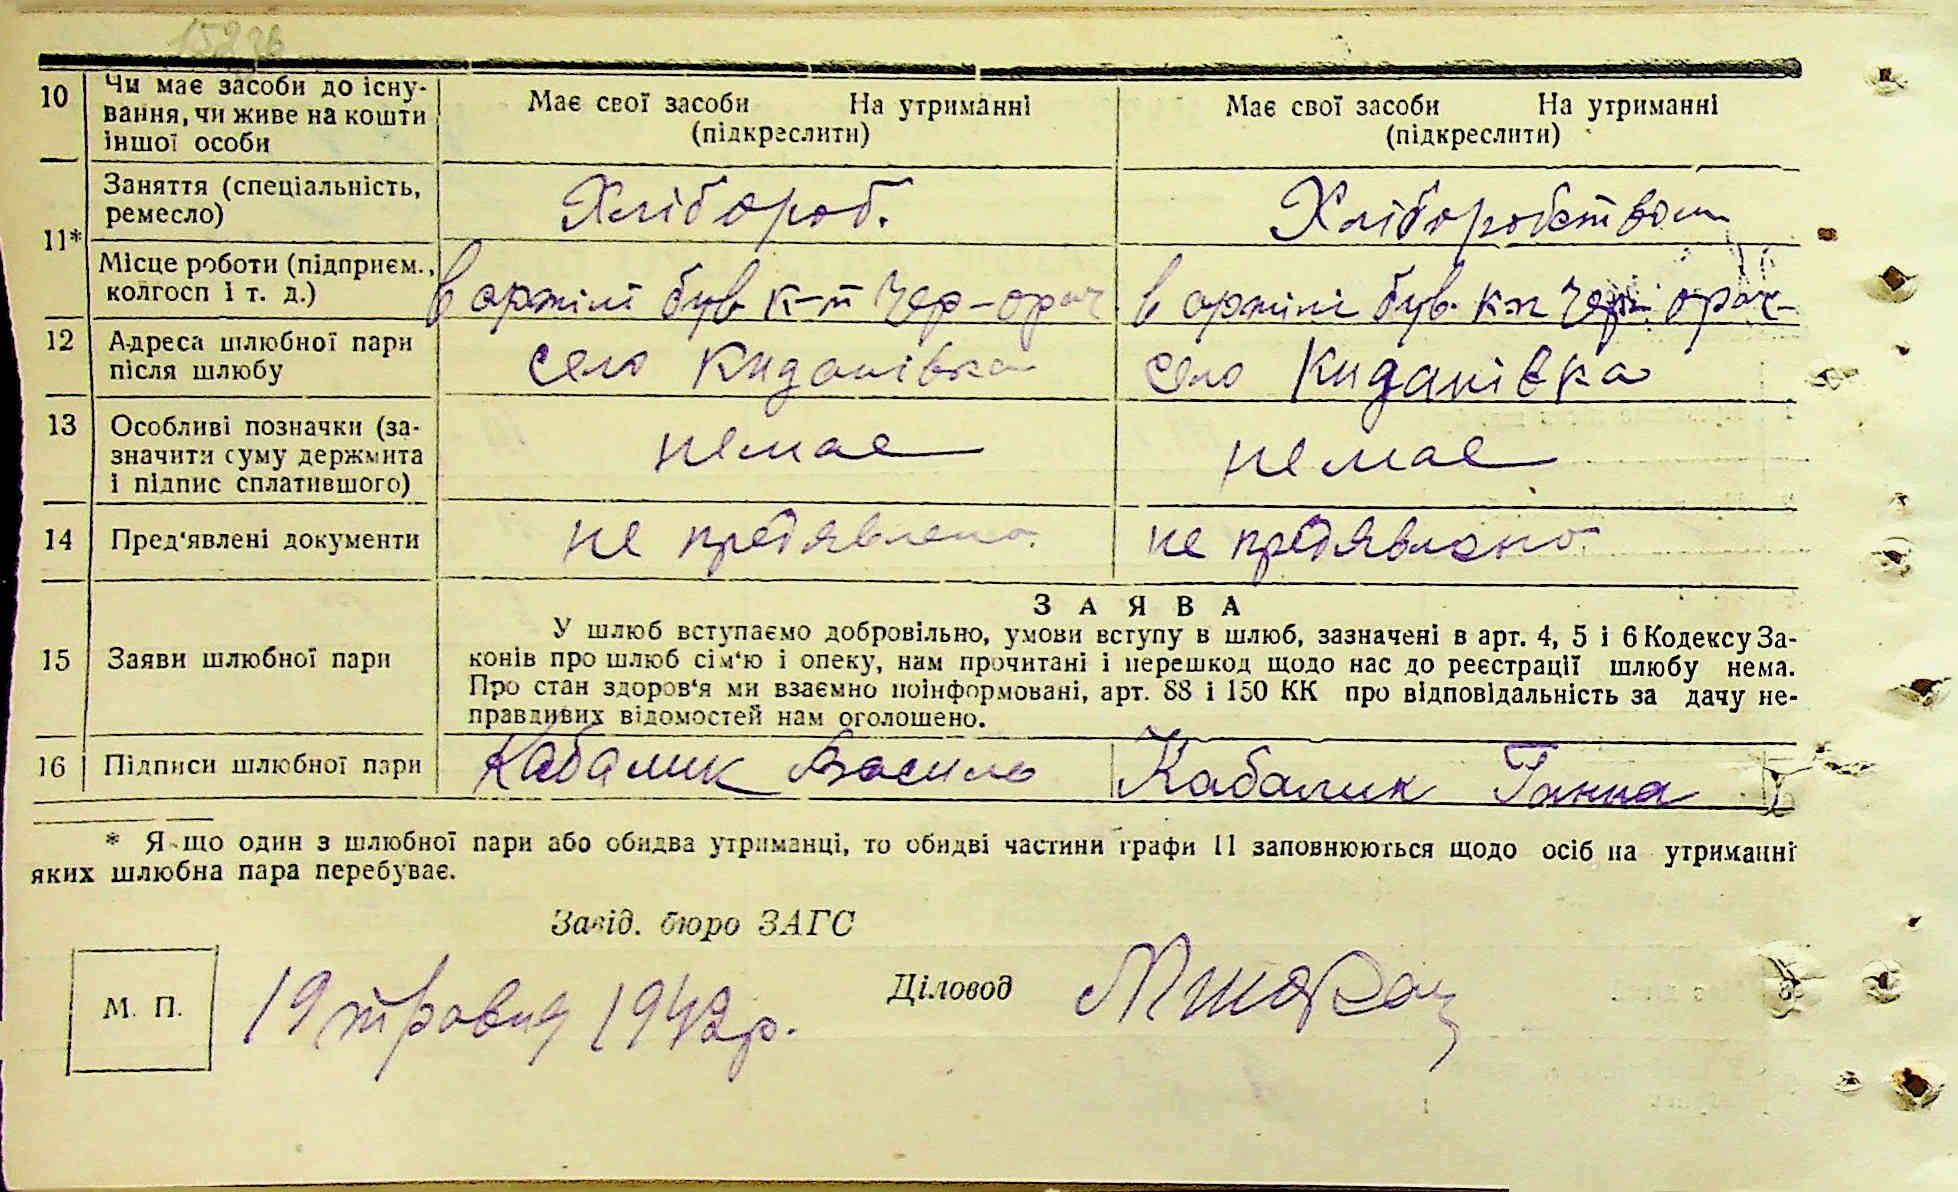 15226
10 Чи має засоби до існу-
вання, чи живе на кошти
іншої особи
Має свої засоби На утриманні
(підкреслити)
Має свої засоби На утриманні
(підкреслити)
11*
Заняття (спеціальність,
ремесло)
Хлібороб.
Хліборобством
Місце роботи (підприєм.,
колгосп і т. д.)
в артілі був. к-п Чер-орач
в артілі був. к-п Чер. орач-
12 Адреса шлюбної пари
після шлюбу
село Киданівка
село Киданівка
13 Особливі позначки (за-
значити суму держмита
і підпис сплатившого)
немає
немає
14 Пред'явлені документи
не предявлено.
не предявлено.
15 Заяви шлюбної пари
ЗАЯВА
У шлюб вступаємо добровільно, умови вступу в шлюб, зазначені в арт. 4, 5 і 6 Кодексу За-
конів про шлюб сім'ю і опеку, нам прочитані і перешкод щодо нас до реєстрації шлюбу нема.
Про стан здоров'я ми взаємно поінформовані, арт. 88 і 150 КК про відповідальність за дачу не-
правдивих відомостей нам оголошено.
16 Підписи шлюбної пари
Кабалик Василь
Кабалик Ганна
* Якщо один з шлюбної пари або обидва утриманці, то обидві частини графи 11 заповнюються щодо осіб на утриманні
яких шлюбна пара перебуває.
Завід. бюро ЗАГС
М. П.
19 травня 1942р.
Діловод